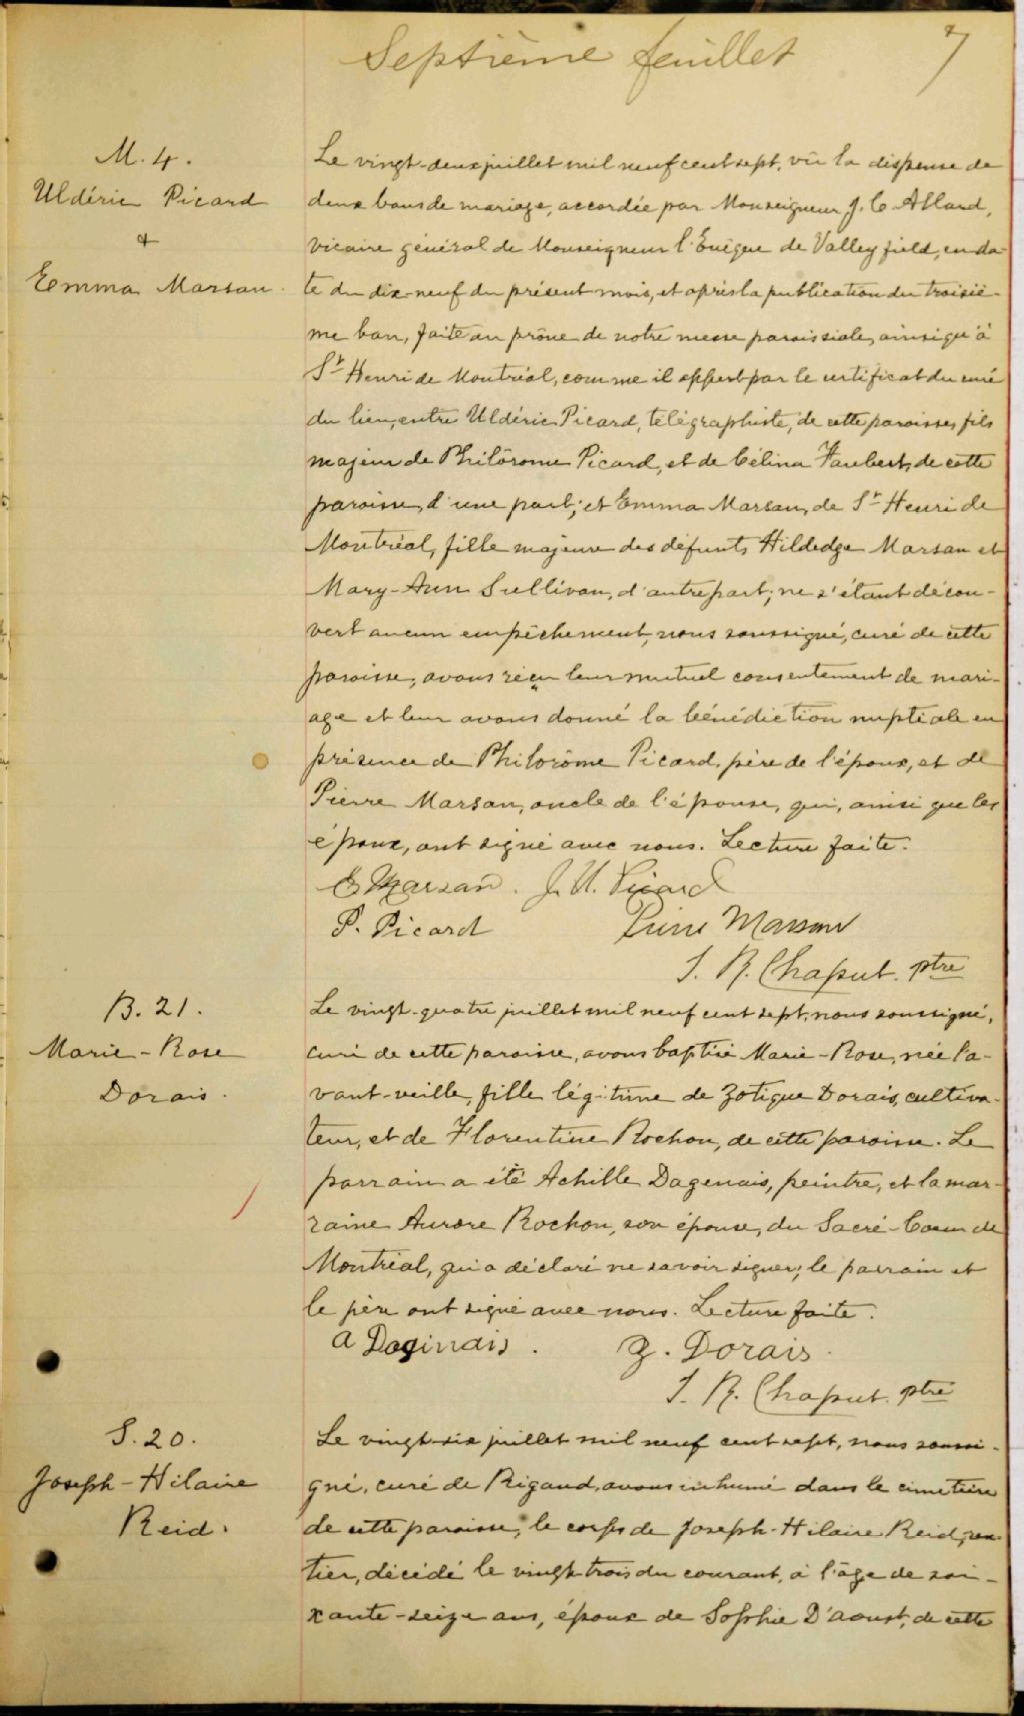 Septième feuillet 7
M. 4.
Uldéric Picard
&
Emma Marsan.
Le vingt-deux juillet mil neuf cent sept, vû la dispense de
deux bans de mariage, accordée par Monseigneur J. C Allard,
vicaire général de Monseigneur l'Evêque de Valleyfield, en da-
te du dix-neuf du présent mois, et après la publication du troisiè-
me ban, faite au prône de notre messe paroissiale, ainsi qu'à
St Henri de Montréal, comme il appert par le certificat du curé
du lieu, entre Uldéric Picard, télégraphiste, de cette paroisse, fils
majeur de Philorome Picard, et de Célina Faubert, de cette
paroisse, d'une part; et Emma Marsan, de St Henri de
Montréal, fille majeure des défunts Hildedge Marsan et
Mary-Ann Sullivan, d'autre part; ne s'étant décou-
vert aucun empêchement, nous soussigné, curé de cette
paroisse, avons reçu leur mutuel consentement de mari-
age et leur avons donné la bénédiction nuptiale en
présence de Philorôme Picard, père de l'époux, et de
Pierre Marsan, oncle de l'épouse, qui, ainsi que les
époux, ont signé avec nous. Lecture faite.
E Marsan. J. U. Picard
P. Picard Pierre Marsan
J. R. Chaput. ptre
B. 21.
Marie-Rose
Dorais.
Le vingt-quatre juillet mil neuf cent sept, nous soussigné,
curé de cette paroisse, avons baptisé Marie-Rose, née l'a-
vant-veille, fille légitime de Zotique Dorais, cultiva-
teur, et de Florentine Rochon, de cette paroisse. Le
parrain a été Achille Dagenais, peintre, et la mar-
raine Aurore Rochon, son épouse, du Sacré-Coeur de
Montréal, qui a déclaré ne savoir signer; le parrain et
le père ont signé avec nous. Lecture faite.
A Daginais. Z. Dorais.
J. R. Chaput. ptre
S. 20.
Joseph-Hilaire
Reid.
Le vingt-six juillet mil neuf cent sept, nous soussi-
gné, curé de Rigaud, avons inhumé dans le cimetière
de cette paroisse, le corps de Joseph-Hilaire Reid, ren-
tier, décédé le vingt-trois du courant, à l'âge de soi-
xante-seize ans, époux de Sophie D'aoust, de cette